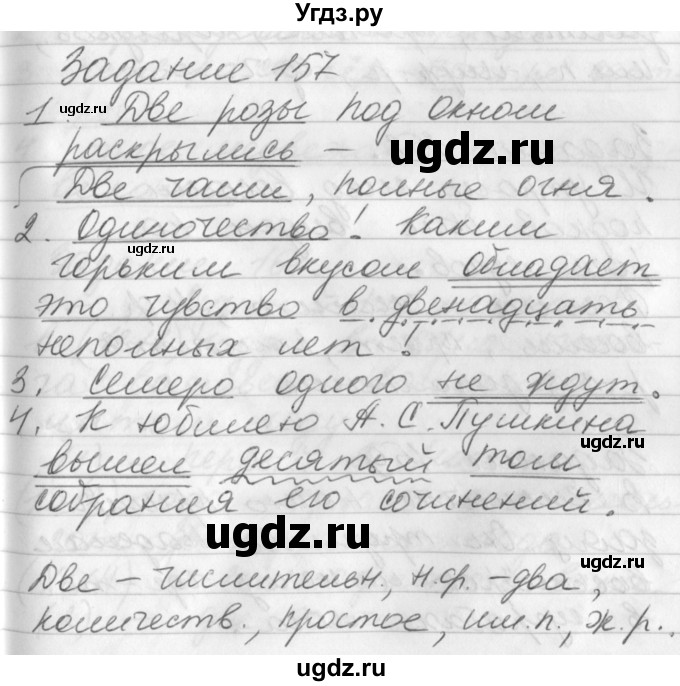 Угдз.ру
Задание 157
1. Две розы под окном
раскрылись –
Две чаши, полные огня.
2. Одиночество! Каким
горьким вкусом обладает
это чувство в двенадцать
неполных лет!
3. Семеро одного не ждут.
4. К юбилею А. С. Пушкина
вышел десятый том
собрания его сочинений.
Две – числительн., н.ф. – два,
количеств., простое, им.п., ж.р.
ugdz.ru
ugdz.ru
ugdz.ru
ugdz.ru
ugdz.ru
ugdz.ru
ugdz.ru
ugdz.ru
ugdz.ru